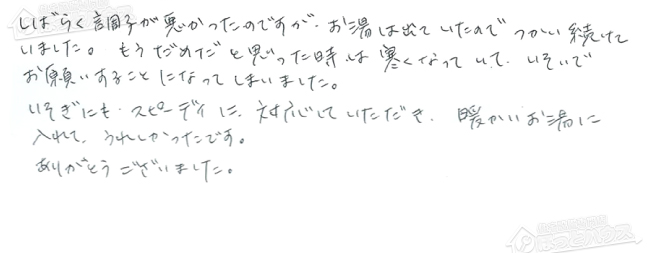 しばらく調子が悪かったのですが、お湯は出ていたのでつかい続けて
いました。もうだめだと思った時は寒くなっていて、いそいで
お願いすることになってしまいました。
いそぎにも、スピーディに、対応していただき、暖かいお湯に
入れて、うれしかったです。
ありがとうございました。